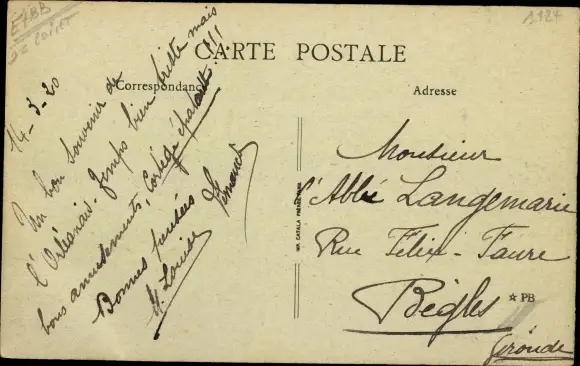 CARTE POSTALE
Correspondance
Adresse
14-3-20
Un bon souvenir de
l'Orléanais. Temps bien triste mais
bons amusements, Cortège épatant!!!
Bonnes pensées
M. Louise
Monsieur
l'Abbé Langemarie
Rue Félix-Faure
Bègles
Gironde
☆ PB
IMP. CATALA FRÈRES PARIS